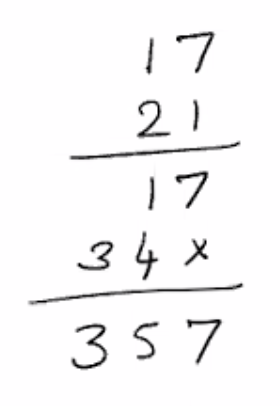 17
21
17
34×
357